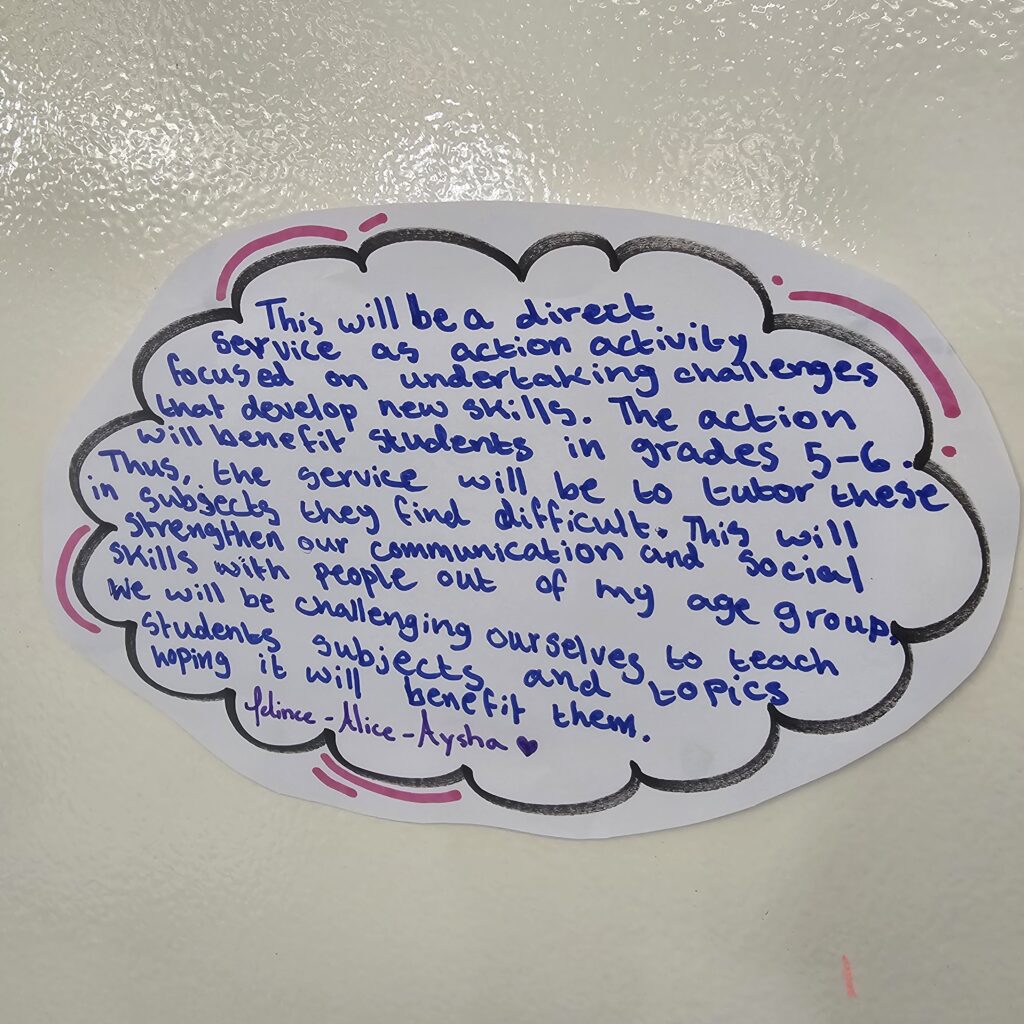 This will be a direct
service as action activity
focused on undertaking challenges
that develop new skills. The action
will benefit students in grades 5-6.
Thus, the service will be to tutor these
in subjects they find difficult. This will
strengthen our communication and social
skills with people out of my age group,
We will be challenging ourselves to teach
students subjects and topics
hoping it will benefit them.
-Alice-Aysha